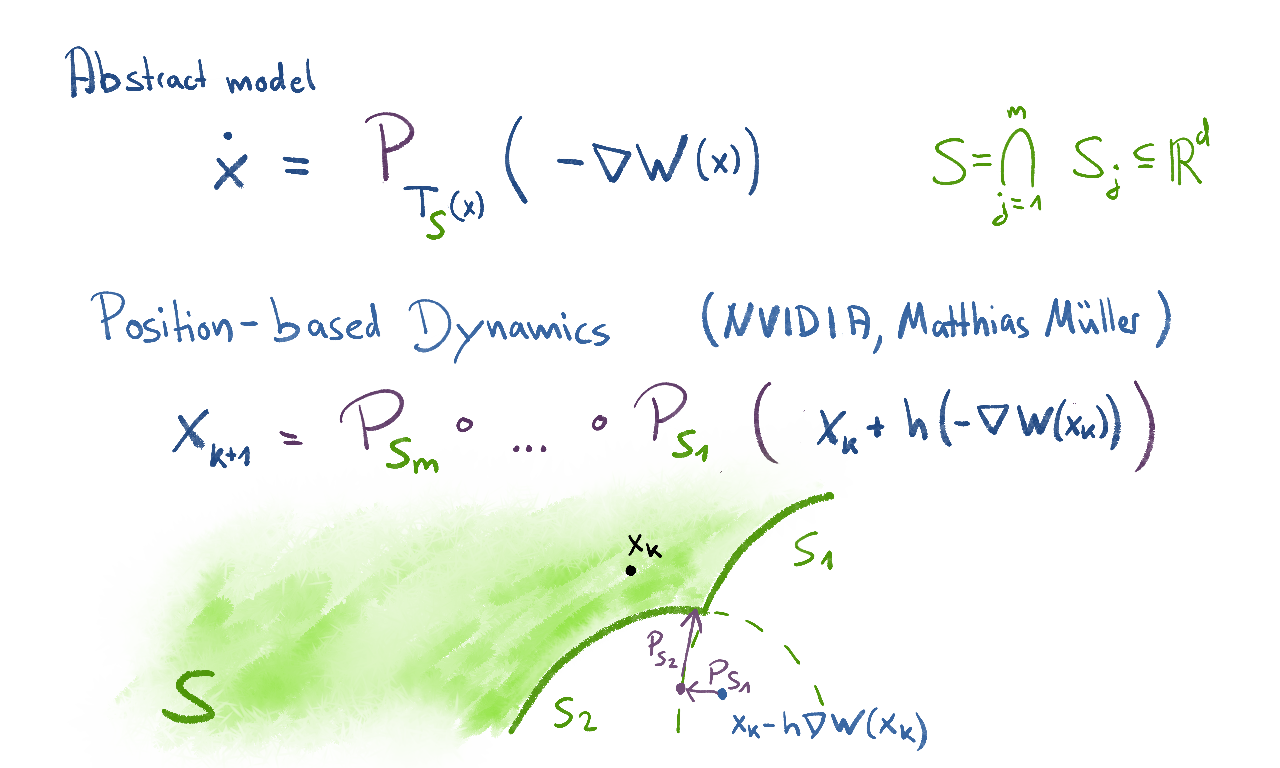 Abstract model
ẋ = P_{T_S(x)} ( -∇W(x) )    S = ⋂_{j=1}^{m} S_j ⊆ ℝ^d
Position-based Dynamics (NVIDIA, Matthias Müller)
x_{k+1} = P_{S_m} ∘ ... ∘ P_{S_1} ( x_k + h(-∇W(x_k)) )
x_k
S_1
P_{S_2}
P_{S_1}
S
S_2
x_k - h∇W(x_k)